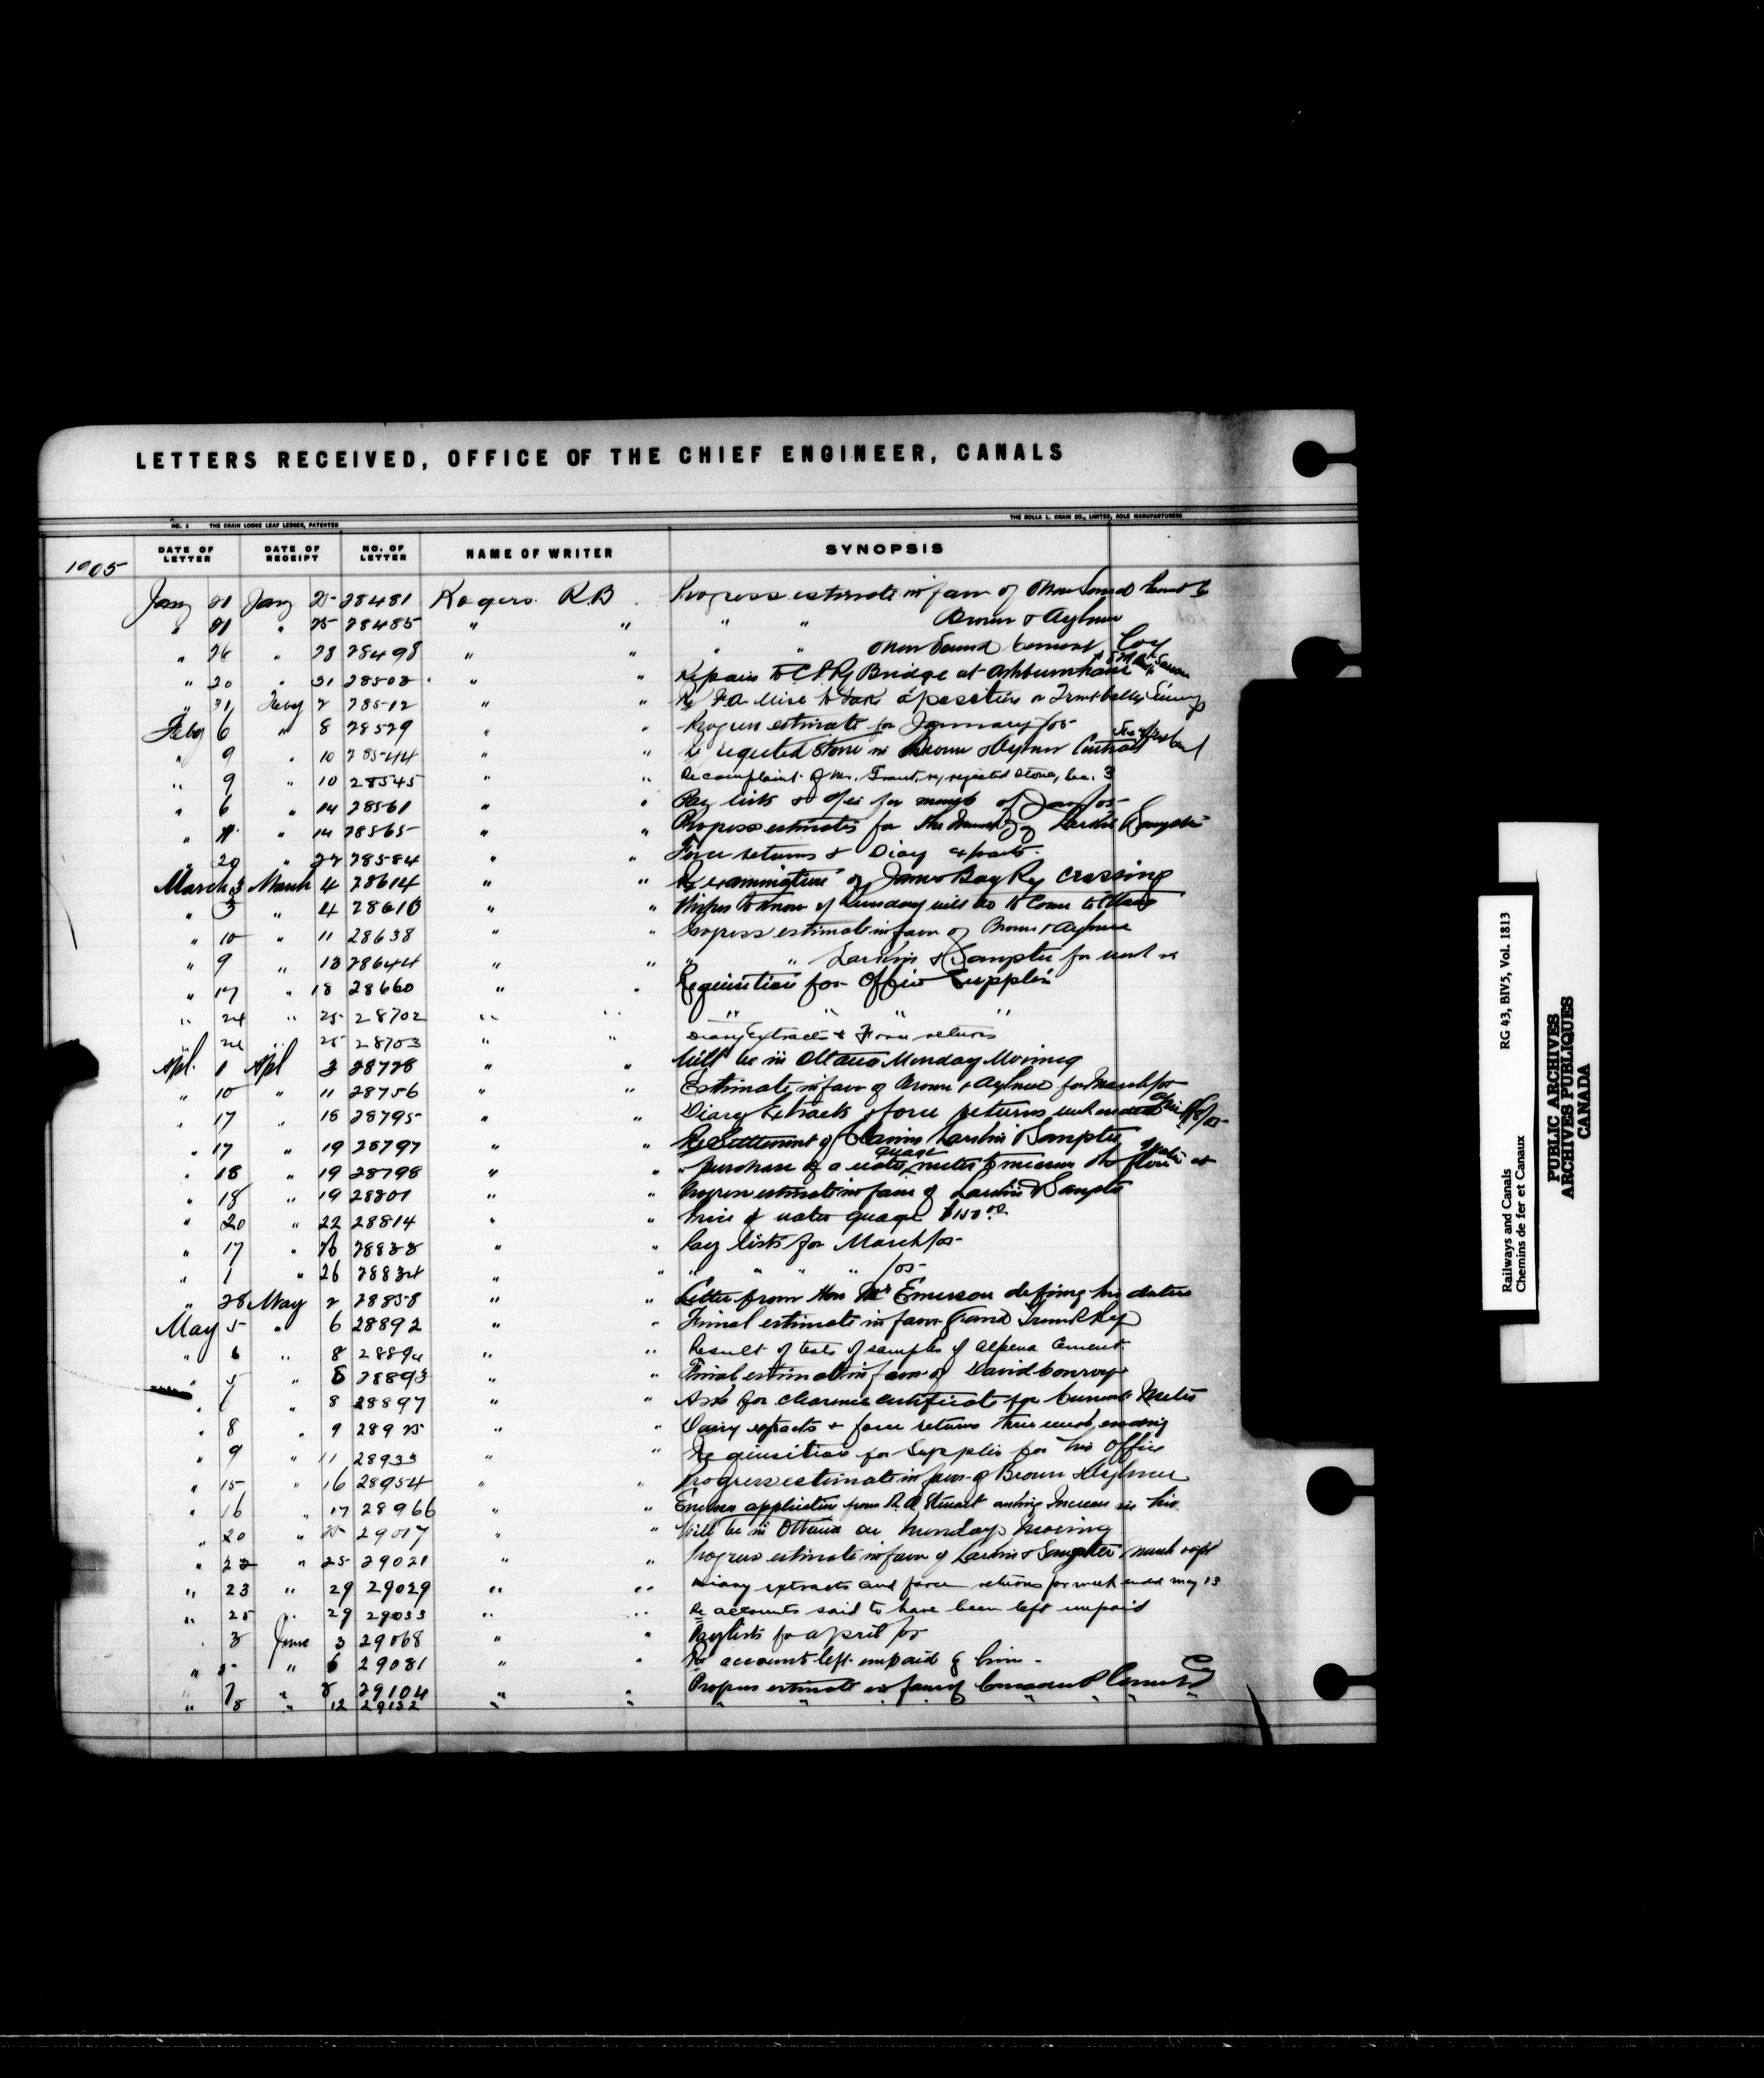 LETTERS RECEIVED, OFFICE OF THE CHIEF ENGINEER, CANALS
NO. 1 THE CRAIN LOOSE LEAF LEDGER, PATENTED THE ROLLA L. CRAIN CO., LIMITED, SOLE MANUFACTURERS
1905 DATE OF LETTER DATE OF RECEIPT NO. OF LETTER NAME OF WRITER SYNOPSIS
Jany 21 Jany 25 28481 Rogers R.B. Progress estimate in favor of Owen Sound
" 21 " 25 28485 " " " " Brown & Aylmer
" 26 " 28 28498 " " " " Owen Sound Cement Coy
" 20 " 31 28503 " " Repairs to C.P.Ry Bridge at Ashburnham
" 31 Feby 2 28512 " " Re F.A. to take a position on Trent
Feby 6 " 8 28529 " " Progress estimate for January/05
" 9 " 10 28544 " " Re rejected stone in Brown & Aylmer Contract
" 9 " 10 28545 " " Re complaint of Mr. Grant, re rejected stone, Sec. 3
" 6 " 14 28561 " " Pay lists & for month of Jany/05
" " 14 28565 " " Progress estimates for Larkin & Sangster
" 20 " 22 28584 " " Force returns & Diary extracts.
March 3 March 4 28614 " " Re examination of James Bay Ry crossing
" 3 " 4 28616 " " Wishes to know if Sunday will do to come to Ottawa
" 10 " 11 28638 " " Progress estimate in favor of Brown & Aylmer
" 9 " 13 28644 " " " " Larkin & Sangster for
" 17 " 18 28660 " " Requisition for Office Supplies
" 24 " 25 28702 " " " " "
" 24 " 25 28703 " " Diary Extracts & Force returns
Apl. 1 Apl 3 28728 " " Will be in Ottawa Monday Morning
" 10 " 11 28756 " " Estimate in favor of Brown & Aylmer for March/05
" 17 " 18 28795 " " Diary Extracts & force returns week ended 8/05
" 17 " 19 28797 " " Re Settlement of Claims Larkin & Sangster
" 18 " 19 28798 " " " purchase of a water guage meter to measure the flow of water at
" 18 " 19 28801 " " Progress estimate in favor of Larkin & Sangster
" 20 " 22 28814 " " Price of water guage $150.00
" 17 " 26 28833 " " Pay lists for March/05
" 1 " 26 28834 " " " " " " /05
" 28 May 2 28858 " " Letter from Hon Mr Emerson defining his duties
May 5 " 6 28892 " " Final estimate in favor Grand Trunk Ry
" 6 " 8 28894 " " Result of tests of samples of Alpena Cement
" 5 " 8 28893 " " Final estimate in favor of David Conroy
" " 8 28897 " " Asks for clearance certificate for Current Meter
" 8 " 9 28925 " " Dairy extracts & force returns three week ending
" 9 " 11 28933 " " Requisition for Supplies for his Office
" 15 " 16 28954 " " Progress estimate in favor of Brown & Aylmer
" 16 " 17 28966 " " Encloses application from R.A. Stuart asking Increase in his
" 20 " 29017 " " Will be in Ottawa on Monday Morning
" 23 " 25 29021 " " Progress estimate in favor of Larkin & Sangster March
" 23 " 29 29029 " " Diary extracts and force returns for week ended May 13
" 25 " 29 29033 " " Re accounts said to have been left unpaid
" 3 June 3 29068 " " Paylists for April/05
" 5 " 6 29081 " " Re accounts left unpaid by him -
" 7 " 8 29104 " " Progress estimate in favor of Canadian P. Cement Co
" 8 " 12 29132 " " " " " " "
Railways and Canals RG 43, BIV5, Vol. 1813
Chemins de fer et Canaux
PUBLIC ARCHIVES
ARCHIVES PUBLIQUES
CANADA